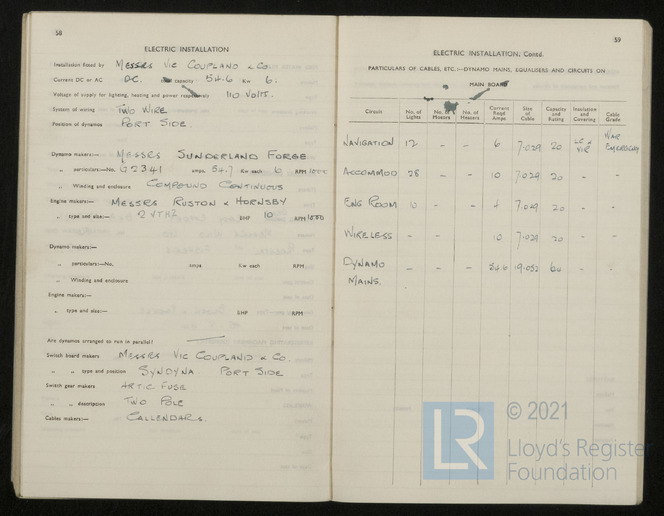 58
ELECTRIC INSTALLATION
Installation fitted by MESSRS VIC COUPLAND & CO.
Current DC or AC DC. capacity 54.6 Kw 6.
Voltage of supply for lighting, heating and power respectively 110 VOLTS.
System of wiring TWO WIRE
Position of dynamos PORT SIDE.
Dynamo makers:— MESSRS SUNDERLAND FORGE
„ particulars:—No. G2341 amps. 54.7 Kw each 6 RPM 1000
„ Winding and enclosure COMPOUND CONTINUOUS
Engine makers:— MESSRS RUSTON & HORNSBY
„ type and size:— 2 VTH2 BHP 10 RPM 1000
Dynamo makers:—
„ particulars:—No. amps Kw each RPM
„ Winding and enclosure
Engine makers:—
„ type and size:— BHP RPM
Are dynamos arranged to run in parallel?
Switch board makers MESSRS VIC COUPLAND & CO.
„ „ type and position SYNDYNA PORT SIDE
Switch gear makers ARTIC FUSE
„ „ description TWO POLE
Cables makers:— CALLENDARS.
59
ELECTRIC INSTALLATION, Contd.
PARTICULARS OF CABLES, ETC.:—DYNAMO MAINS, EQUALISERS AND CIRCUITS ON
MAIN BOARD
Circuit No. of Lights No. of Motors No. of Heaters Current Read Amps Size of Cable Capacity and Rating Insulation and Covering Cable Grade
NAVIGATION 12 – – 6 7.029 20 LC & VIR WAR EMERGENCY
ACCOMMOD 28 – – 10 7.029 20 – –
ENG ROOM 10 – – 4 7.029 20 – –
WIRELESS – – 10 7.029 20 – –
DYNAMO MAINS. – – – 54.6 19.052 64 – –
LR
© 2021
Lloyd's Register
Foundation